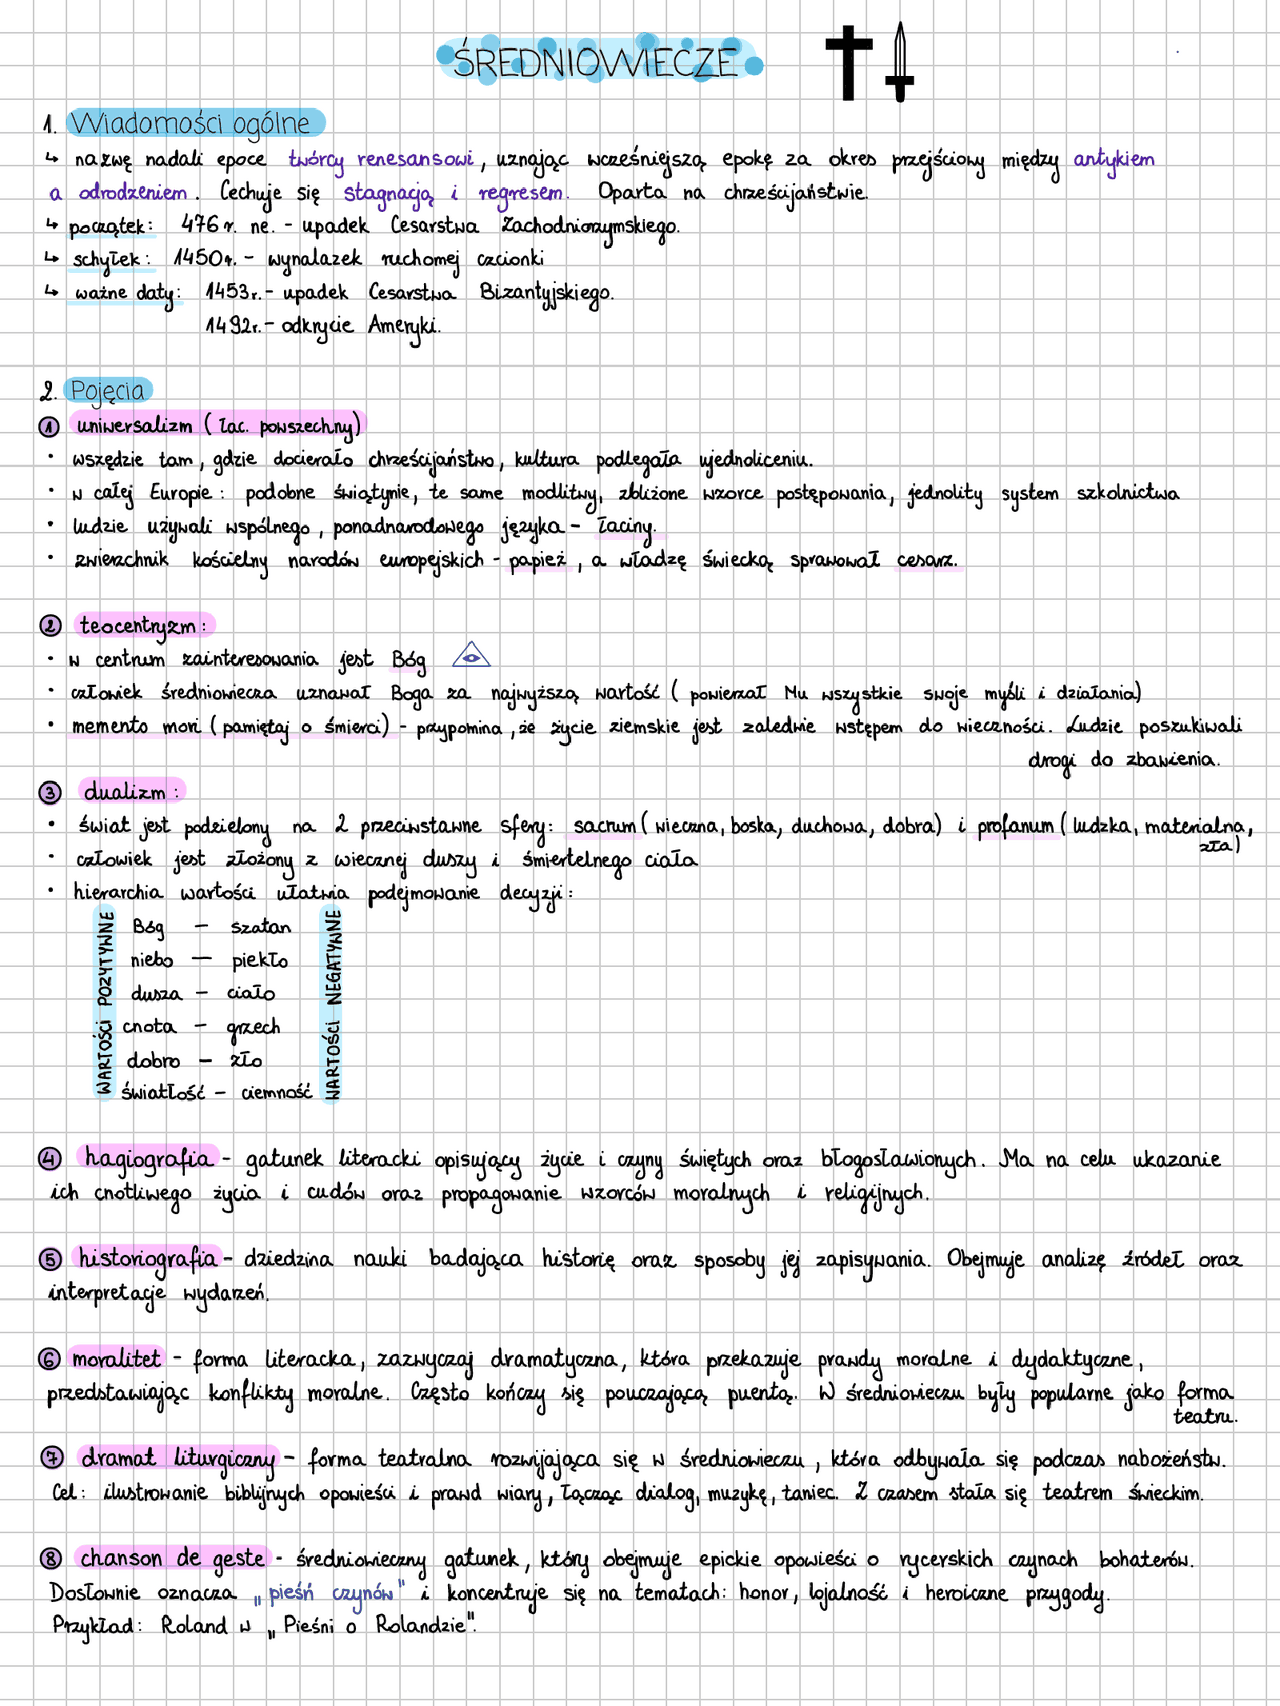 ŚREDNIOWIECZE
1. Wiadomości ogólne
↳ nazwę nadali epoce twórcy renesansowi, uznając wcześniejszą epokę za okres przejściowy między antykiem
a odrodzeniem. Cechuje się stagnacją i regresem. Oparta na chrześcijaństwie.
↳ początek: 476 r. ne. - upadek Cesarstwa Zachodniorzymskiego.
↳ schyłek: 1450r. - wynalazek ruchomej czcionki
↳ ważne daty: 1453r. - upadek Cesarstwa Bizantyjskiego.
1492r. - odkrycie Ameryki.
2. Pojęcia
1 uniwersalizm (łac. powszechny)
• wszędzie tam, gdzie docierało chrześcijaństwo, kultura podlegała ujednoliceniu.
• w całej Europie: podobne świątynie, te same modlitwy, zbliżone wzorce postępowania, jednolity system szkolnictwa
• ludzie używali wspólnego, ponadnarodowego języka - łaciny.
• zwierzchnik kościelny narodów europejskich - papież, a władzę świecką sprawował cesarz.
2 teocentryzm:
• w centrum zainteresowania jest Bóg
• człowiek średniowiecza uznawał Boga za najwyższą wartość (powierzał Mu wszystkie swoje myśli i działania)
• memento mori (pamiętaj o śmierci) - przypomina, że życie ziemskie jest zaledwie wstępem do wieczności. Ludzie poszukiwali
drogi do zbawienia.
3 dualizm:
• świat jest podzielony na 2 przeciwstawne sfery: sacrum (wieczna, boska, duchowa, dobra) i profanum (ludzka, materialna,
zła)
• człowiek jest złożony z wiecznej duszy i śmiertelnego ciała
• hierarchia wartości ułatwia podejmowanie decyzji:
WARTOŚCI POZYTYWNE
WARTOŚCI NEGATYWNE
Bóg — szatan
niebo — piekło
dusza — ciało
cnota — grzech
dobro — zło
światłość — ciemność
4 hagiografia - gatunek literacki opisujący życie i czyny świętych oraz błogosławionych. Ma na celu ukazanie
ich cnotliwego życia i cudów oraz propagowanie wzorców moralnych i religijnych.
5 historiografia - dziedzina nauki badająca historię oraz sposoby jej zapisywania. Obejmuje analizę źródeł oraz
interpretacje wydarzeń.
6 moralitet - forma literacka, zazwyczaj dramatyczna, która przekazuje prawdy moralne i dydaktyczne,
przedstawiając konflikty moralne. Często kończy się pouczającą puentą. W średniowieczu były popularne jako forma
teatru.
7 dramat liturgiczny - forma teatralna rozwijająca się w średniowieczu, która odbywała się podczas nabożeństw.
Cel: ilustrowanie biblijnych opowieści i prawd wiary, łącząc dialog, muzykę, taniec. Z czasem stała się teatrem świeckim.
8 chanson de geste - średniowieczny gatunek, który obejmuje epickie opowieści o rycerskich czynach bohaterów.
Dosłownie oznacza „pieśń czynów" i koncentruje się na tematach: honor, lojalność i heroiczne przygody.
Przykład: Roland w „Pieśni o Rolandzie".